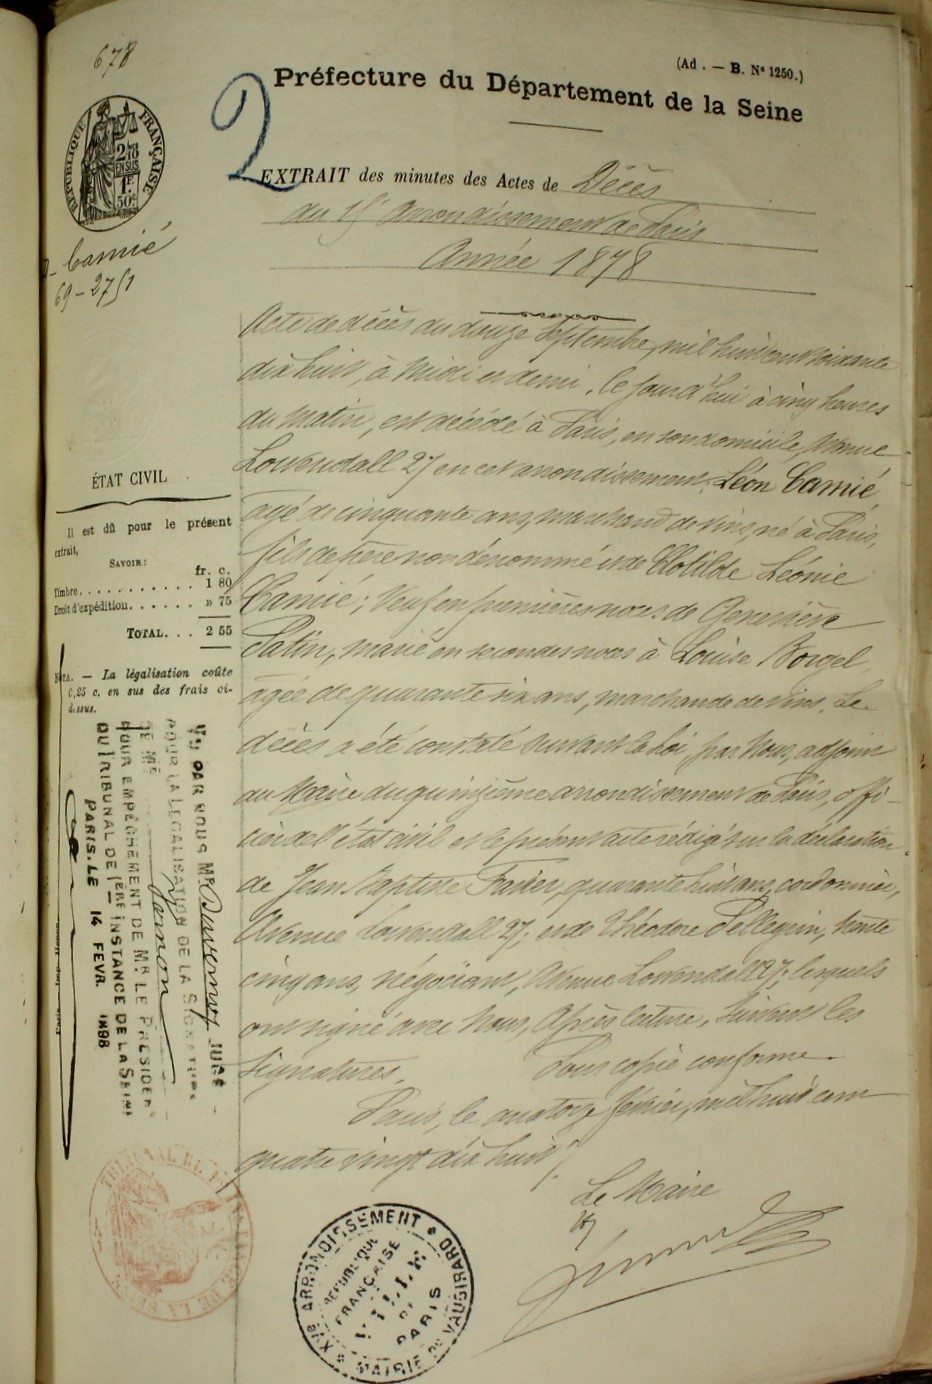 678
(Ad. — B. Nº 1250.)
Préfecture du Département de la Seine
2
RÉPUBLIQUE FRANÇAISE
2/10 EN SUS
1F 50c
EXTRAIT des minutes des Actes de Décès
du 15e arrondissement de Paris
Année 1878
Camié
69-2751
Acte de décès du douze Septembre, mil huit cent soixante
dix huit, à Midi et demi. Le jourd'hui à cinq heures
du matin, est décédé à Paris, en son domicile, Avenue
Lowendall 27 en cet arrondissement, Léon Camié
agé de cinquante ans, marchand de vins, né à Paris,
fils de père non dénommé et de Clotilde Léonie
Camié; Veuf en premières noces de Geneviève
Patin, marié en secondes noces à Louise Borgel,
agée de quarante six ans, marchande de vins. Le
décès a été constaté suivant la loi, par Nous, adjoint
au Maire du quinzième arrondissement de Paris, offi-
cier de l'état civil et le présent acte rédigé sur la déclaration
de Jean Baptiste Favier, quarante huit ans, cordonnier,
Avenue Lowendall 27; et de Théodore Pellegrin, trente
cinq ans, négociant, Avenue Lowendall 27; lesquels
ont signé avec Nous, Après lecture. Suivent les
Signatures. Pour copie conforme.
Paris, le quatorze février, mil huit cent
quatre vingt dix huit.
Le Maire
ÉTAT CIVIL
Il est dû pour le présent
extrait,
SAVOIR:
fr. c.
Timbre............ 1 80
Droit d'expédition...... » 75
TOTAL... 2 55
NOTA. — La légalisation coûte
0,25 c. en sus des frais ci-
dessus.
VU PAR NOUS MR Duvernoy JUGE
POUR LA LEGALISATION DE LA SIGNATURE
DE ME
POUR EMPÊCHEMENT DE MR LE PRESIDENT
DU TRIBUNAL DE 1ERE INSTANCE DE LA SEINE
PARIS. LE 14 FEVR. 1898
XVe ARRONDISSEMENT * MAIRIE DE VAUGIRARD *
RÉPUBLIQUE
FRANÇAISE
VILLE
DE
PARIS